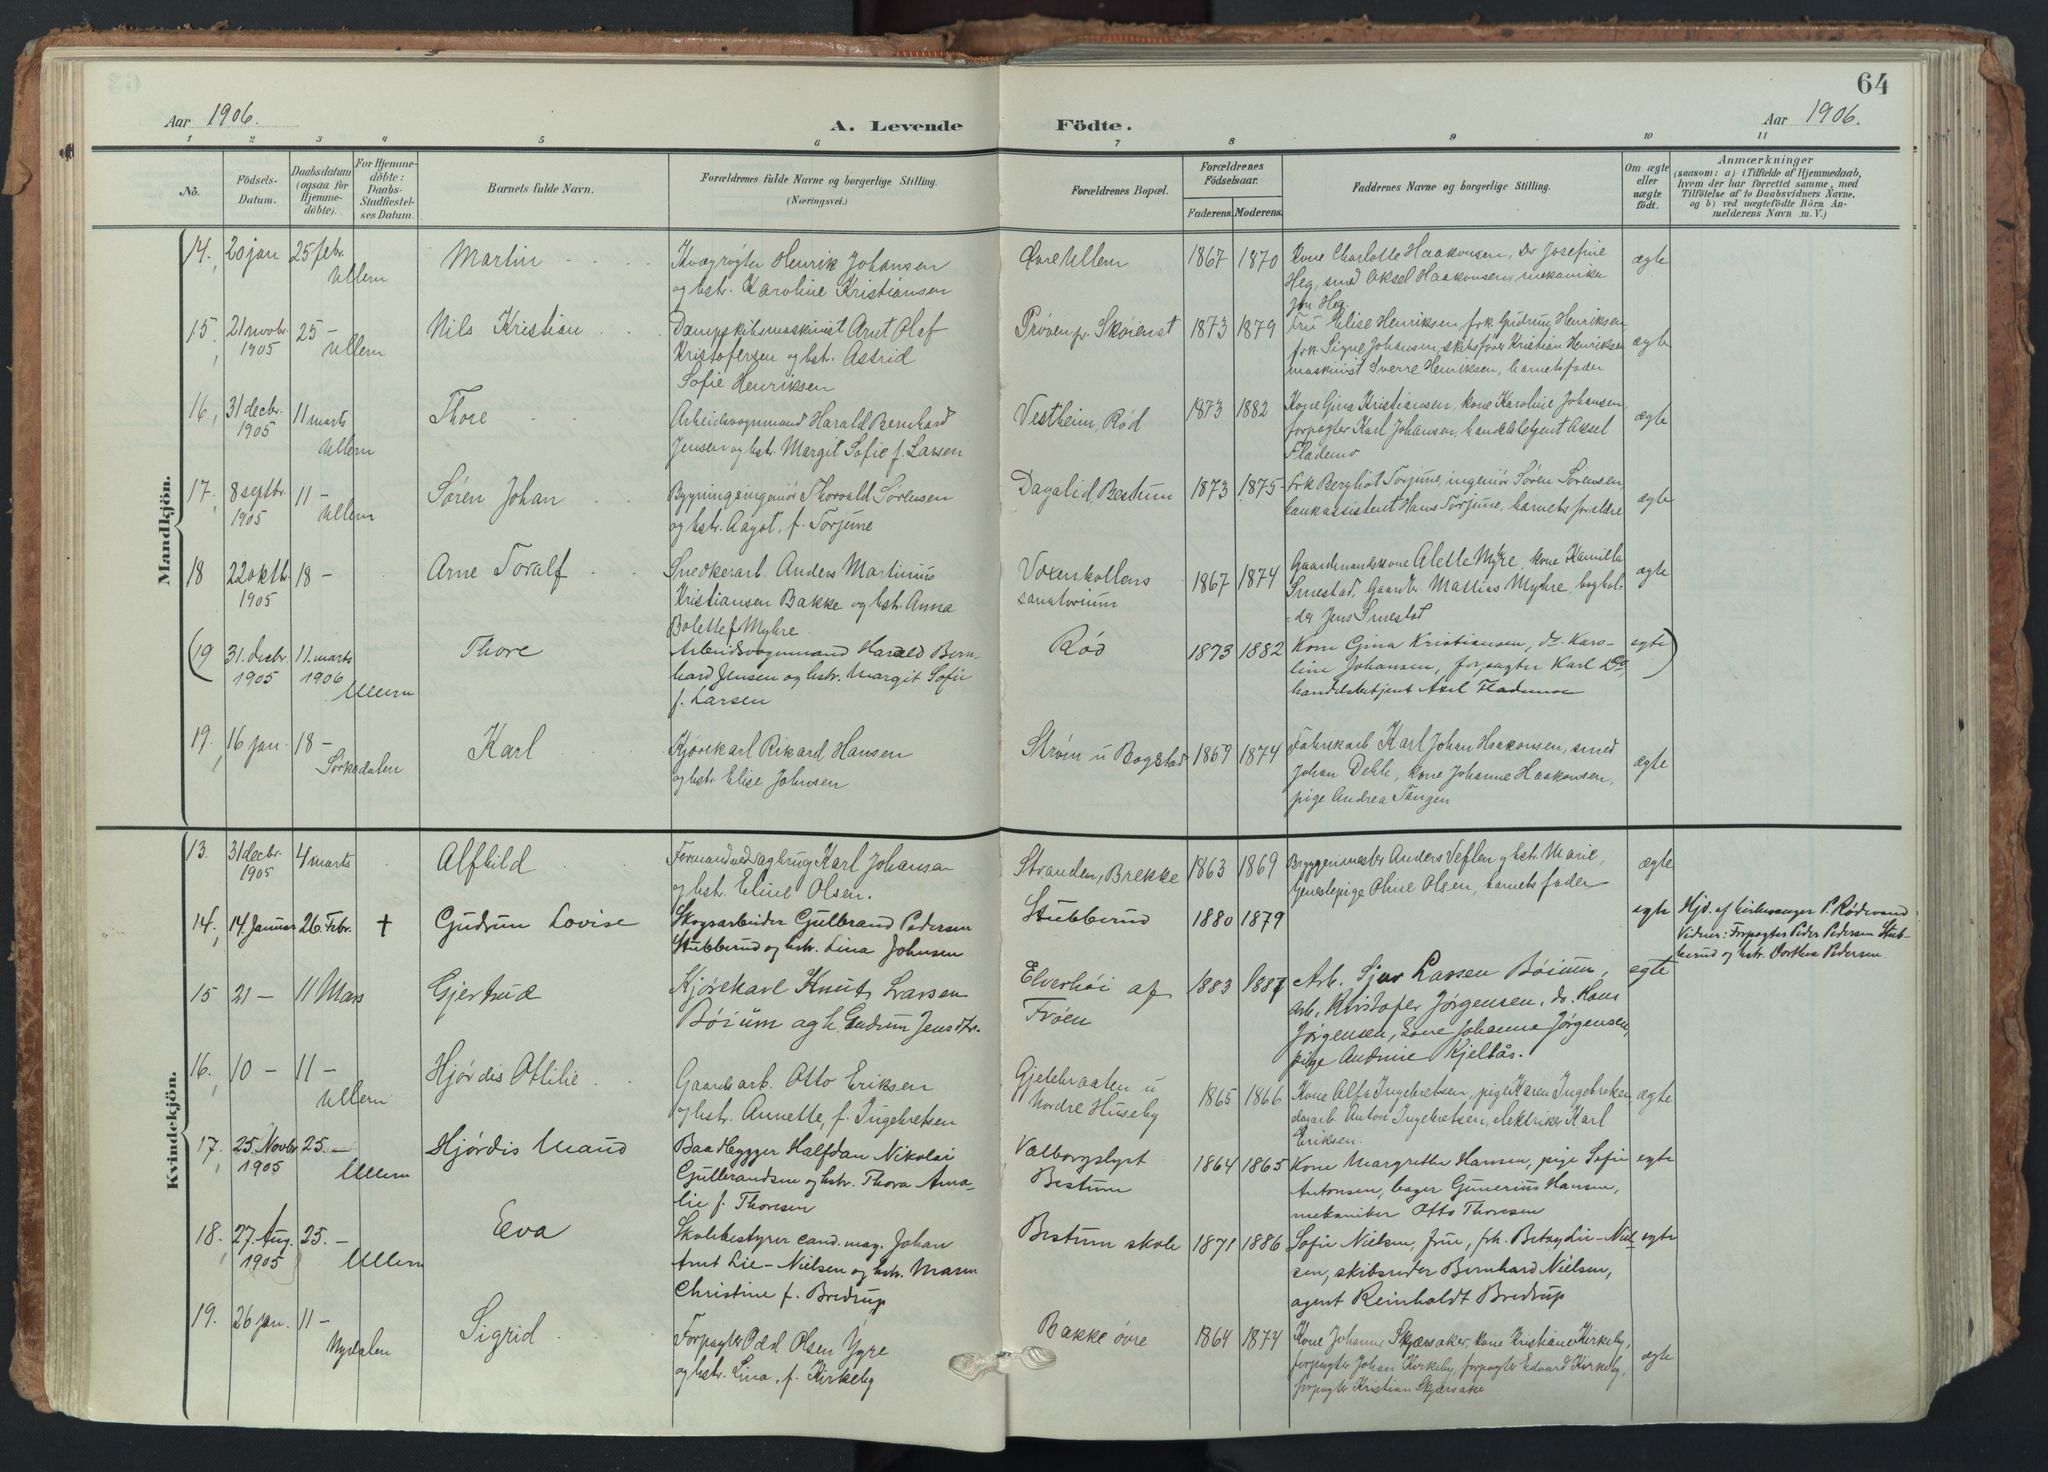 64
Aar 1906. A. Levende Födte. Aar 1906.
1 2 3 4 5 6 7 8 9 10 11
No. Födsels-Datum. Daabsdatum (ogsaa for Hjemme-döbte). For Hjemme-döbte: Daabs-Stadfæstel-ses Datum. Barnets fulde Navn. Forældrenes fulde Navne og borgerlige Stilling. (Næringsvei.) Forældrenes Bopæl. Forældrenes Födselsaar. Faderens. Moderens. Faddernes Navne og borgerlige Stilling. Om ægte eller uægte födt. Anmærkninger (saasom: a) i Tilfælde af Hjemmedaab, hvem der har forrettet samme, med Tilföielse af to Daabsvidners Navne, og b) ved uægtefödte Börn An-melderens Navn m. V.)
Mandkjön.
14, 20 jan 25 febr. Martin Kvægrøgter Henrik Johansen Øvre Ullern 1867 1870 Kone Charlotte Haakonsen, Do Josefine ægte
Ullern og hstr. Karoline Kristiansen Heg, smed Aksel Haakonsen, mekaniker
Jon Heg.
15, 21 novbr. 25 – Nils Kristian Dampskibsmaskinist Arnt Olaf Prøven pr. Skøienst 1873 1879 Fru Elise Henriksen, frk. Gudrun Henriksen ægte
1905 Ullern Kristofersen og hstr. Astrid frk. Signe Johansen, skibsfører Kristian Henriksen
Sofie Henriksen maskinist Sverre Henriksen, barnets fader
16, 31 decbr. 11 marts Thore Arbeidsvognmand Harald Bernhard Vestheim, Rød 1873 1882 Kone Gina Kristiansen, kone Karoline Johansen ægte
1905 Ullern Jensen og hstr. Margit Sofie f. Larsen forpagter Karl Johansen, handelsbetjent Aksel
Flademo
17, 8 septbr. 11 – Søren Johan Bygningsingeniør Thorvald Sørensen Dagalid, Bestum 1873 1875 Frk Bergliot Torjune, ingeniør Søren Sørensen, ægte
1905 Ullern og hstr. Aagot, f. Torjune bankassistent Hans Torjune, barnets forældre
18 22 oktb. 18 – Arne Toralf Snedkerarb. Anders Martinius Voxenkollens 1867 1874 Gaardmandskone Alette Myhre, kone Kamilla ægte
1905 Kristiansen Bakke og hstr. Anna sanatorium Smestad, Gaardbr. Mathias Myhre, boghol-
Bolette f Myhre = der Jens Smestad
(19 31. decbr. 11. marts Thore Arbeidsvognmand Harald Bern- Rød 1873 1882 Kone Gina Kristiansen, do. Karo- egte)
1905 1906 hard Jensen og hstr. Margit Sofie line Johansen, forpagter Karl Do,
Ullern f. Larsen handelsbetjent Axel Flademoe
19, 16 jan. 18 – Karl Kjørekarl Rikard Hansen Strøm u Bogstad 1869 1874 Fabrikarb. Karl Johan Haakonsen, smed ægte
Sørkedalen og hstr. Elise Johnsen Johan Dehli, kone Johanne Haakonsen,
pige Andrea Tangen
Kvindekjön.
13. 31 decbr. 4 marts Alfhild Formand ved sagbrug Karl Johansen Stranden, Brekke 1863 1869 Bryggerimester Anders Veflen og hstr. Marie, ægte
1905 og hstr. Eline Olsen. Oline Olsen, barnets fader
14, 14 Januar 26. Febr. † Gudrun Lovise Skogsarbeider Gulbrand Pedersen Stubberud 1880 1879 egte Hjd. af kirkesanger P. Rødsrand
Stubberud og hstr. Lina Johnsen Vidner: Forpagter Peder Pedersen Stub-
berud og hstr. Dorthea Pedersen.
15 21 – 11 Mars Gjertrud Kjørekarl Knut Larsen Elverhøi af 1883 1887 Arb. Sjur Larsen Bøium, egte
Bøium og h. Gudrun Jensdtr. Frøen arb. Kristofer Jørgensen, do. Hans
Jørgensen, kone Johanne Jørgensen,
pige Andrine Kjeltås.
16. 10 – 11 – Hjørdis Ottilie Gaardsarb. Otto Eriksen Gjetebraaten u 1865 1866 Kone Alfa Ingebretsen, pige Karen Ingebretsen, ægte
Ullern og hstr. Annette, f. Ingebretsen Nordre Huseby dagarb. Anton Ingebretsen, elektriker Karl
Eriksen.
17. 25. Novbr 25. – Hjørdis Maud Baadbygger Halfdan Nikolai Valborgslyst 1864 1865 Kone Margrethe Hansen, pige Sofie egte
1905 Ullern Gulbrandsen og hstr. Thora Ama- Bestum Antonsen, bager Gunerius Hansen,
lie f. Thoresen mekaniker Otto Thoresen
18. 27. Aug. 25. – Eva Skolebestyrer cand. mag. Johan Bestum skole 1871 1886 Sofie Nielsen, frue, frk. Betzy Lie-Niel- egte
1905 Ullern Arnt Lie-Nielsen og hstr. Maren sen, skibsreder Bernhard Nielsen,
Christine f. Bredrup agent Reinholdt Bredrup
19. 26 jan. 11 – Sigrid Forpagter Odd Olsen Ygre Bakke øvre 1864 1874 Kone Johanne Skjærsaker, kone Kristiane Kirkeby, ægte
Nydalen og hstr. Lina, f. Kirkeby forpagter Johan Kirkeby, forpagter Edvard Kirkeby,
forpagter Kristian Skjærsake